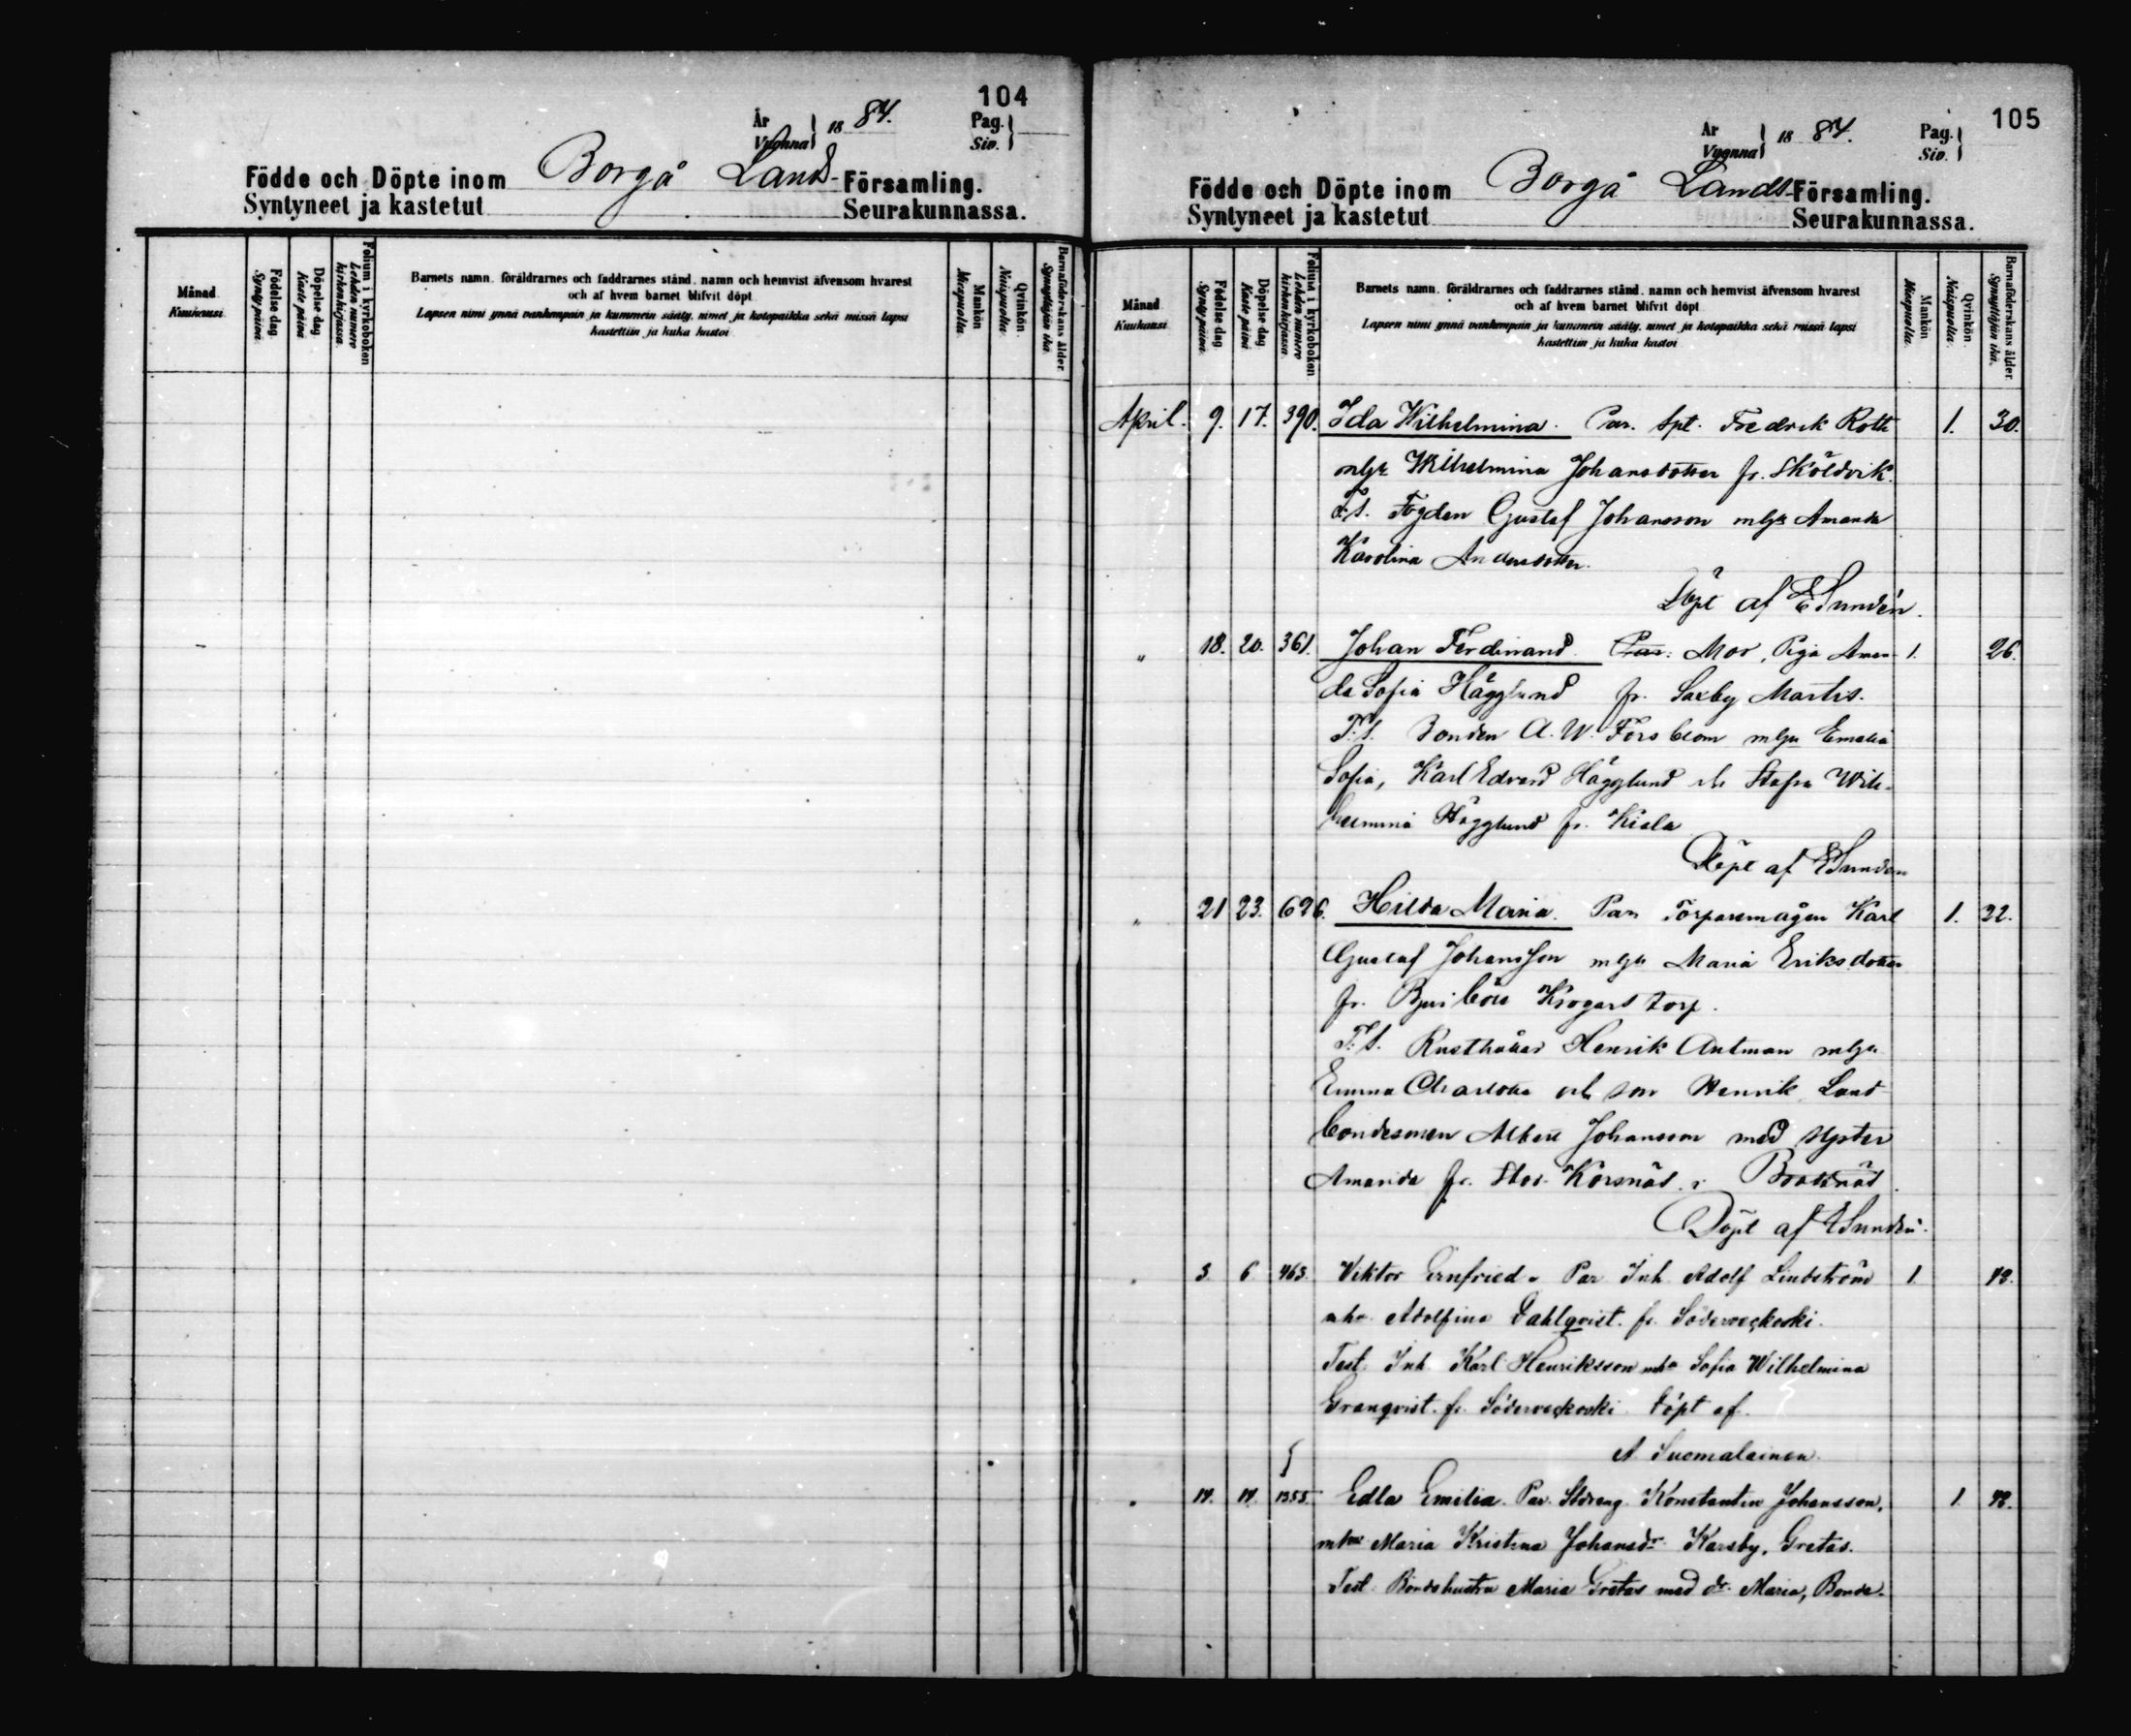 104
År
Vuonna
18 84.
Pag.
Siv.
Födde och Döpte inom Borgå Lands- Församling.
Syntyneet ja kastetut Seurakunnassa.
Månad
Kuukausi
Födelse dag
Synty päivä
Döpelse dag
Kaste päivä
Folium i kyrkoboken
Lehden numero kirkonkirjassa.
Barnets namn, föräldrarnes och faddrarnes stånd, namn och hemvist äfvensom hvarest
och af hvem barnet blifvit döpt
Lapsen nimi ynnä vanhempain ja kummein sääty, nimet ja kotopaikka sekä missä lapsi
kastettiin ja kuka kastoi
Mankön
Miespuolia.
Qvinkön
Naispuolia.
Barnaföderskans ålder.
Synnyttäjän ikä.
105
År
Vuonna
18 84.
Pag.
Siv.
Födde och Döpte inom Borgå Lands- Församling.
Syntyneet ja kastetut Seurakunnassa.
Månad
Kuukausi
Födelse dag
Synty päivä
Döpelse dag
Kaste päivä
Folium i kyrkoboken
Lehden numero kirkonkirjassa.
Barnets namn, föräldrarnes och faddrarnes stånd, namn och hemvist äfvensom hvarest
och af hvem barnet blifvit döpt
Lapsen nimi ynnä vanhempain ja kummein sääty, nimet ja kotopaikka sekä missä lapsi
kastettiin ja kuka kastoi
Mankön
Miespuolia.
Qvinkön
Naispuolia.
Barnaföderskans ålder.
Synnyttäjän ikä.
April. 9. 17. 390. Ida Wilhelmina. Par. Spt. Fredrik Roth 1. 30.
Wilhelmina Johansdotter fr. Sköldvik.
F.S. Fogden Gustaf Johansson Amanda
Karolina Andersdotter.
Döpt af E Sundén.
" 18. 20. 361. Johan Ferdinand. Par. Mor, Piga Aman- 1. 26.
da Sofia Hägglund fr. Saxby Martis.
F.S. Bonden A. W. Forsblom Emelia
Sofia, Karl Edvard Hägglund och Stafva Wil-
helmina Hägglund fr. Kiala
Döpt af E Sundén
" 21 23. 626. Hilda Maria. Par Torparemågen Karl 1. 22.
Gustaf Johansson Maria Eriksdotter
fr. Krogars torp.
F.S. Rusthållar Henrik Antman
Emma Charlotta och son Henrik, Land-
bondesonen Albert Johansson med syster
Amanda fr. Stor- Korsnäs i
Döpt af E Sundén.
" 3 6 463. Viktor Ernfried. Par Inh. Adolf Lindström 1.
mho Adolfina Dahlqvist. fr. Söderveckoski.
Test. Inh. Karl Henriksson mho Sofia Wilhelmina
Granqvist. fr. Söderveckoski Döpt af
A Suomalainen.
" 14. 14. 1355. Edla Emilia. Par. Stdräng. Konstantin Johansson, 1. 42.
Maria Kristina Johansdr Karsby, Gretas.
Test. Bondehustru Maria Gretas med dr. Maria, Bonde-